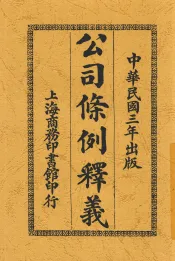 中華民國三年出版
公司條例釋義
上海商務印書館印行